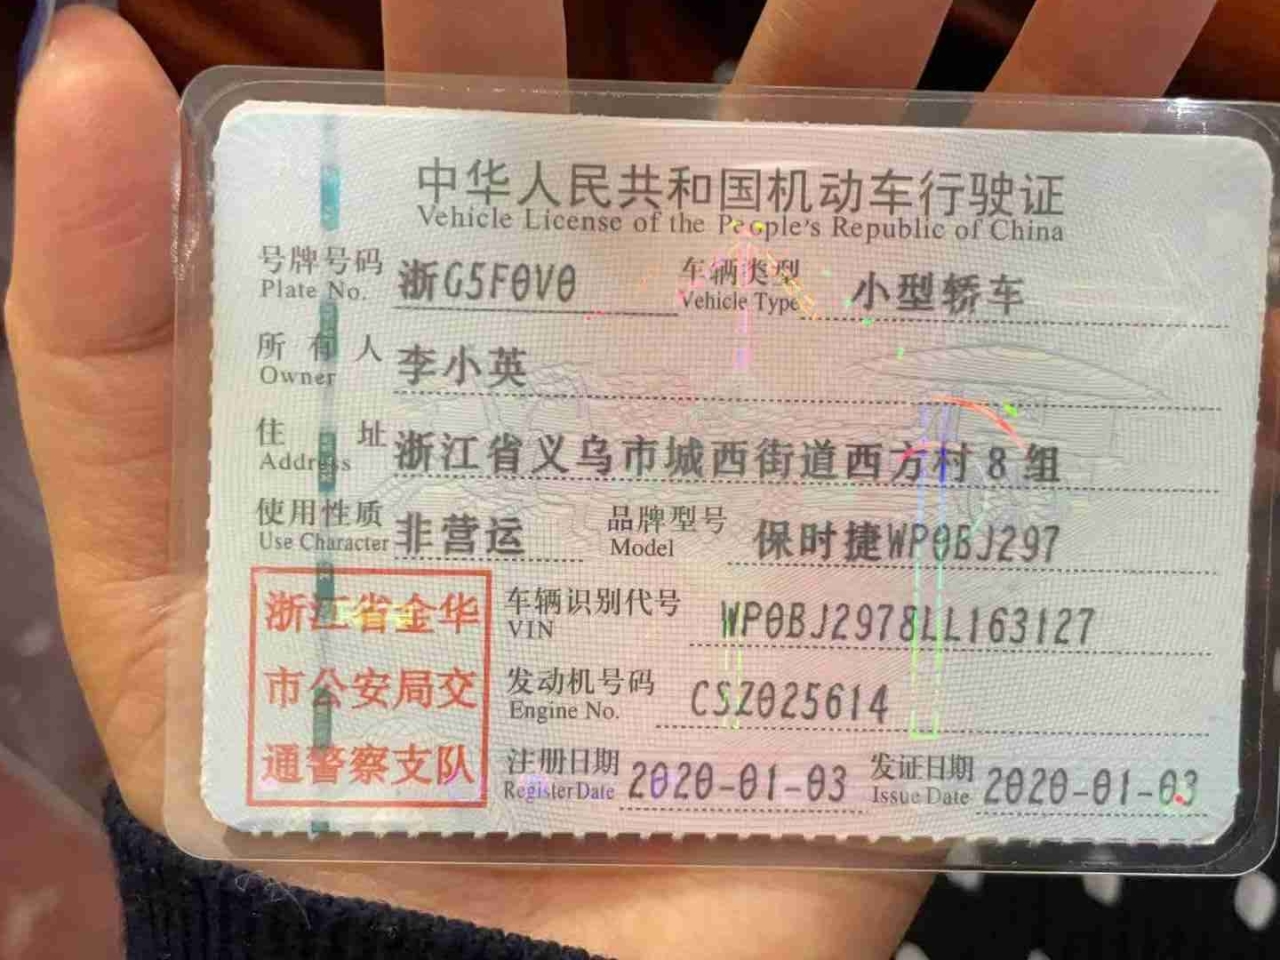 中华人民共和国机动车行驶证
Vehicle License of the People's Republic of China
号牌号码 浙G5F0V0 车辆类型 小型轿车
Plate No. Vehicle Type
所有人 李小英
Owner
住址 浙江省义乌市城西街道西方村8组
Address
使用性质 非营运 品牌型号 保时捷WP0BJ297
Use Character Model
浙江省金华
市公安局交
通警察支队
车辆识别代号 WP0BJ2978LL163127
VIN
发动机号码 CSZ025614
Engine No.
注册日期 2020-01-03 发证日期 2020-01-03
Register Date Issue Date